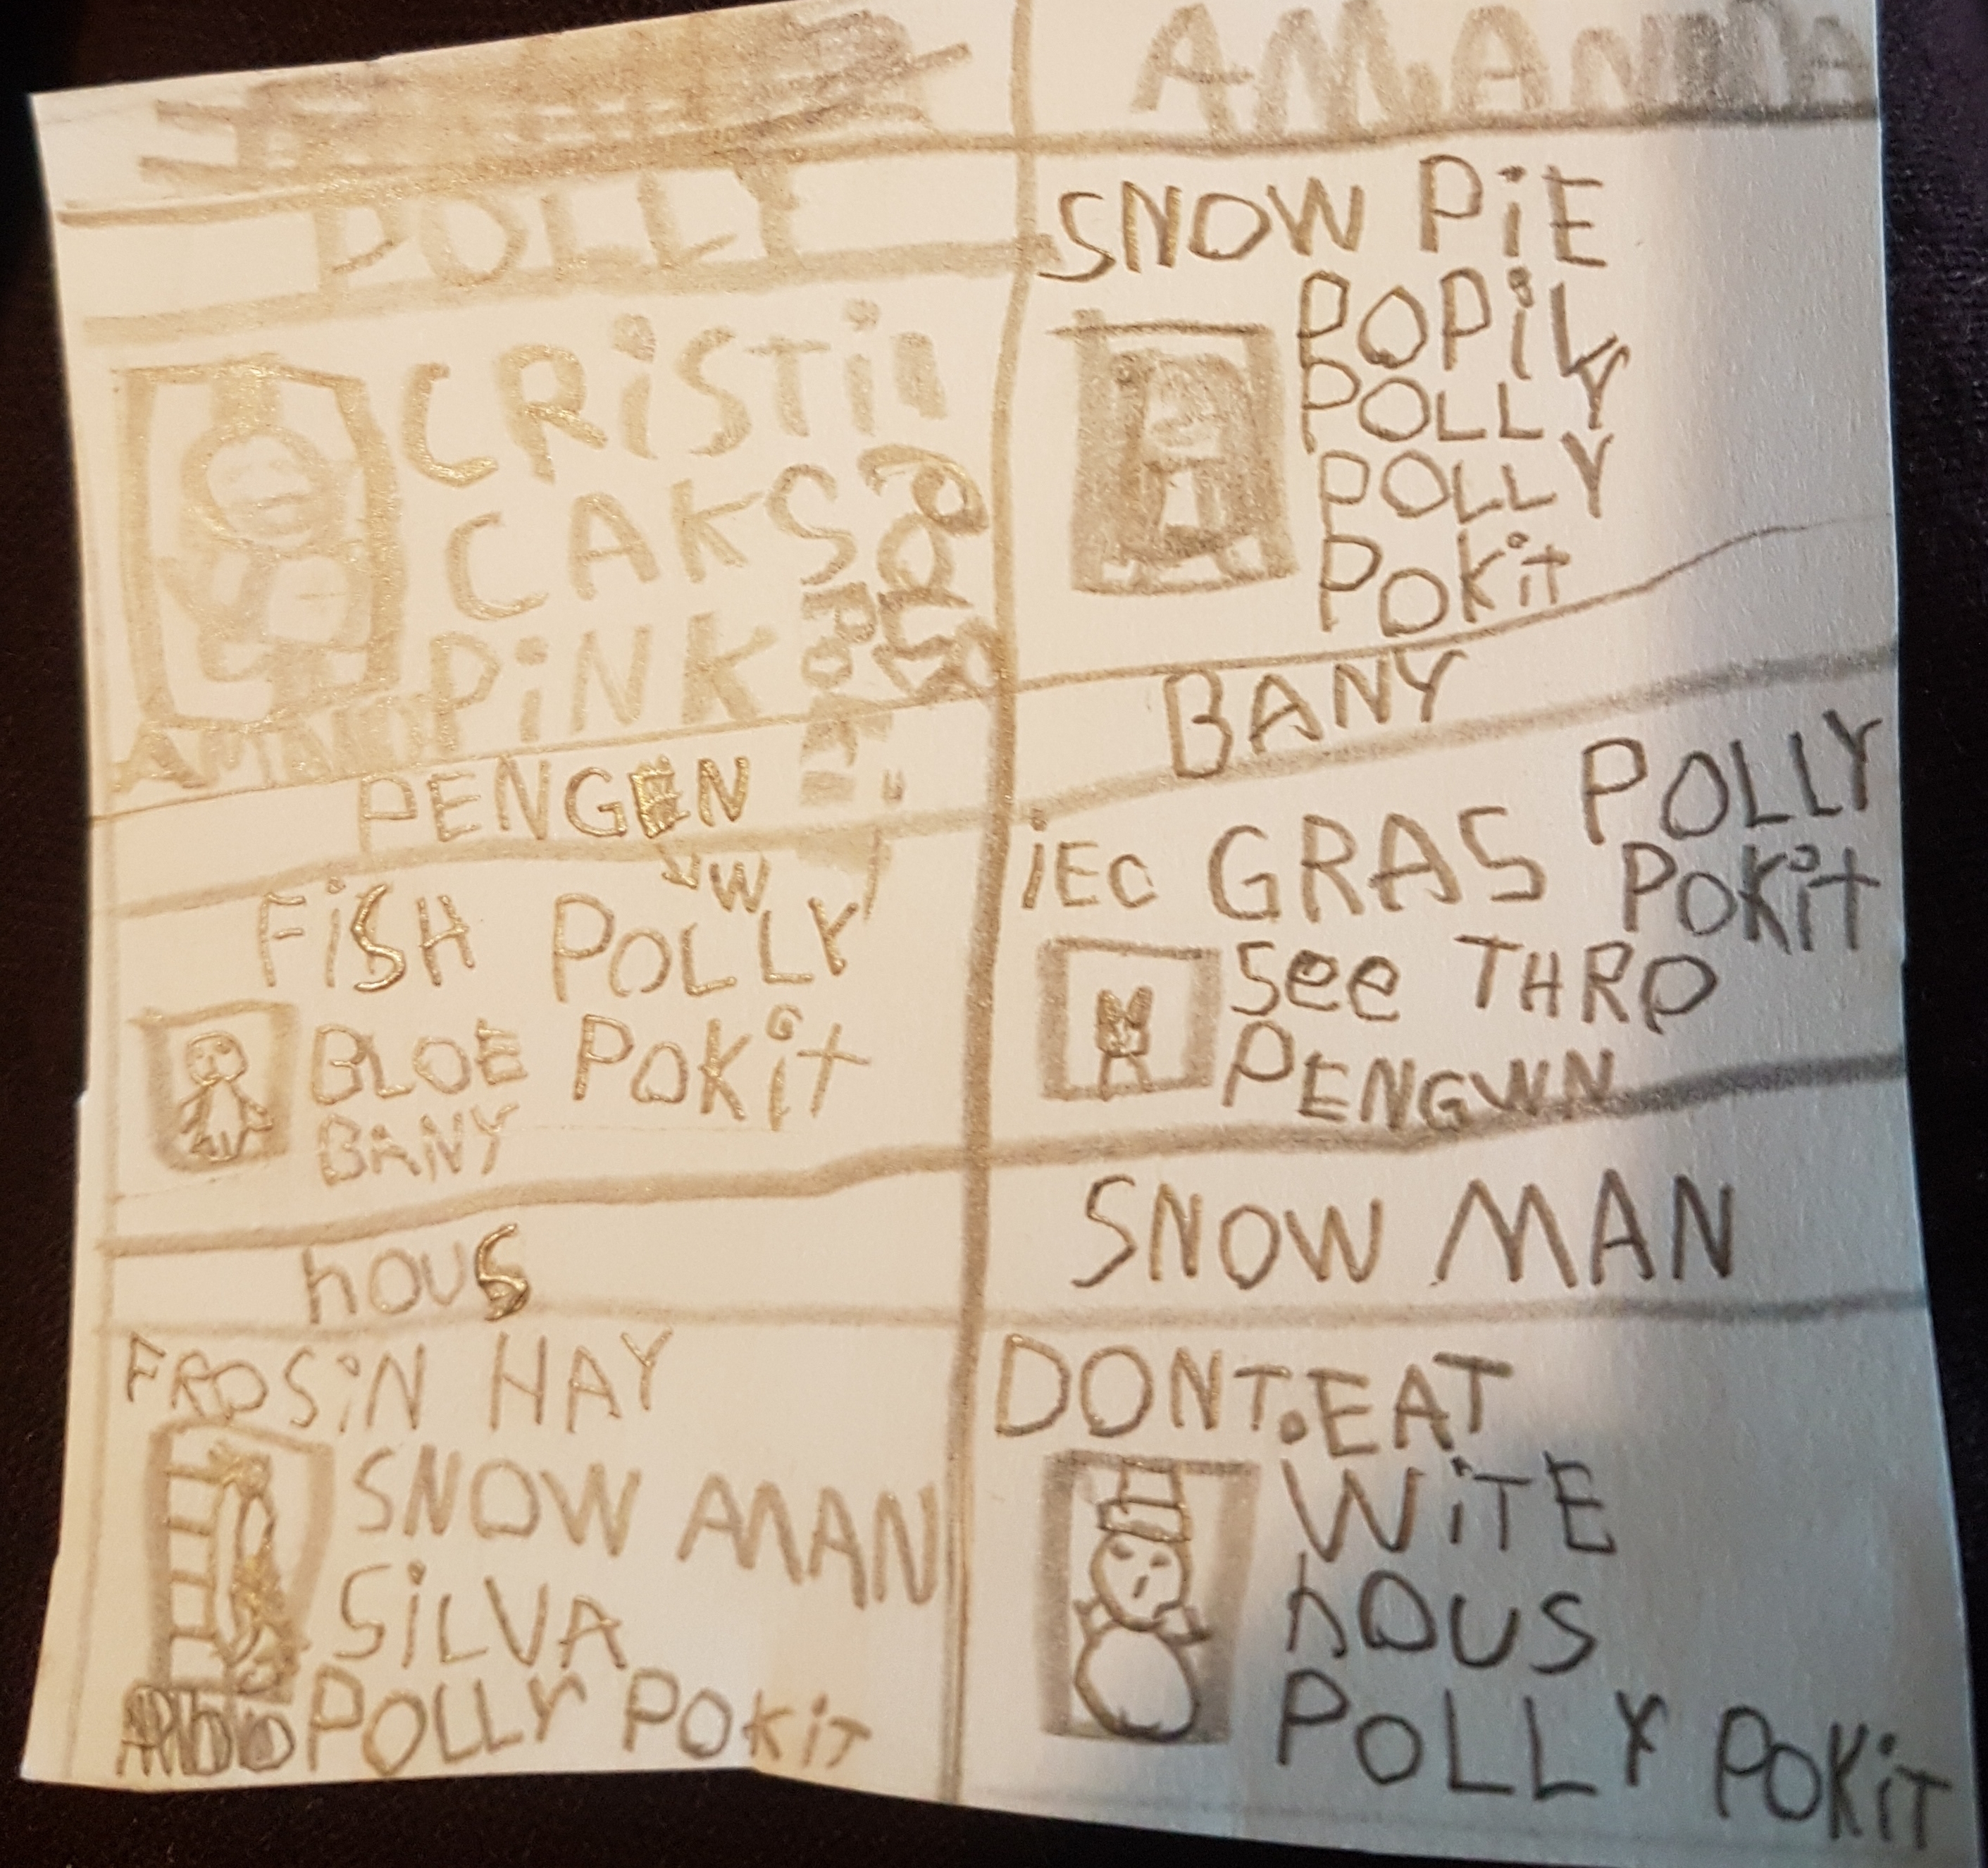 POLLY
CRiSTil
CAKS
PiNK
POLLY
POKiT
PENGEN
FiSH POLLY
BLOE POKit
BANY
hOUS
FROSiN HAY
SNOW MAN
SiLVA
POLLY POKiT
AMANDA
SNOW PiE
POPiL
POLLY
POLLY
POKit
BANY
iEc GRAS POLLY
POKit
See THRO
PENGWN
SNOW MAN
DONT.EAT
WiTE
hOUS
POLLY POKiT